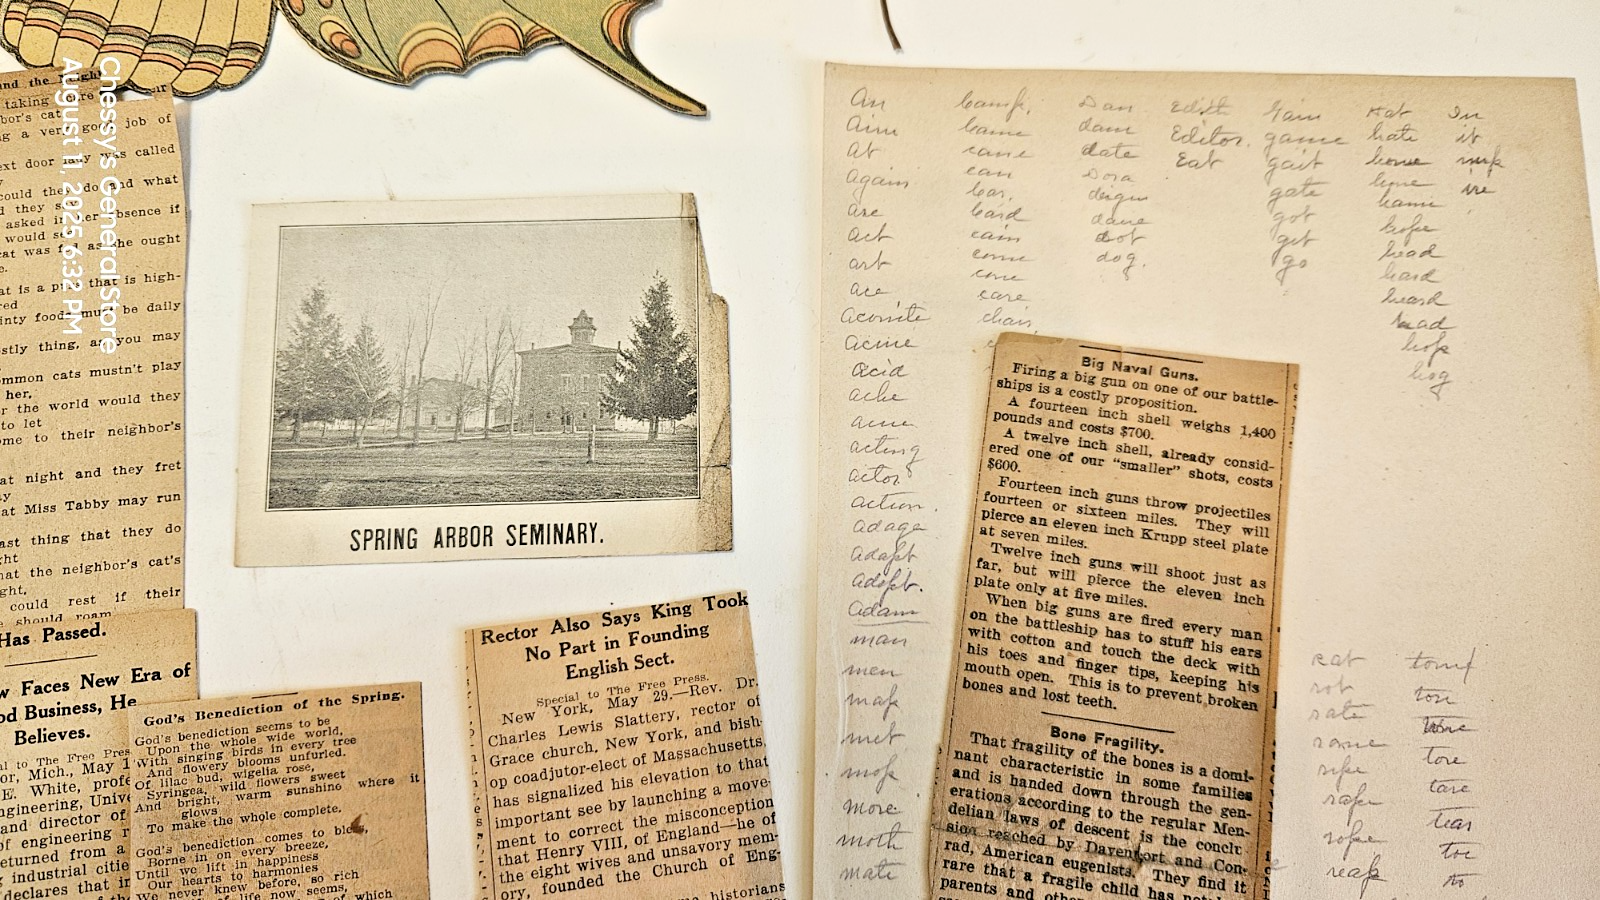 Chessy's General Store
August 11, 2025 6:32 PM
and the Neigh
taking
bor's cat
ng a very good job of
ext door lady was called
could they do and what
d they say
asked in her absence if
would se
cat was fed as she ought
at is a p that is high-
red
inty foods must be daily
stly thing, as you may
ommon cats mustn't play
her,
r the world would they
to let
ome to their neighbor's
at night and they fret
at Miss Tabby may run
ast thing that they do
ght
hat the neighbor's cat's
ght,
could rest if their
should roam
Has Passed.
w Faces New Era of
od Business, He
Believes.
al to The Free Pres
or, Mich., May 1
E. White, profe
ngineering, Unive
and director of
of engineering r
eturned from a
industrial citie
declares that in
God's Benediction of the Spring.
God's benediction seems to be
Upon the whole wide world,
With singing birds in every tree
And flowery blooms unfurled.
Of lilac bud, wigelia rose,
Syringea, wild flowers sweet
And bright, warm sunshine where it
glows
To make the whole complete.
God's benediction comes to bless,
Borne in on every breeze,
Until we lift in happiness
Our hearts to harmonies
We never knew before, so rich
of life now, seems,
of which
SPRING ARBOR SEMINARY.
Rector Also Says King Took
No Part in Founding
English Sect.
Special to The Free Press.
New York, May 29.—Rev. Dr.
Charles Lewis Slattery, rector of
Grace church, New York, and bish-
op coadjutor-elect of Massachusetts,
has signalized his elevation to that
important see by launching a move-
ment to correct the misconception
that Henry VIII, of England—he of
the eight wives and unsavory mem-
ory, founded the Church of Eng-
historians
An
Aim
At
Again
Are
Act
art
ace
Aconite
acme
Acid
ache
acting
actor
action.
adage
adapt
adopt.
Adam
man
men
map
met
mop
more
moth
mate
camp.
came
cane
can
car.
card
cain
come
cone
care
chair.
Dan
dam
date
Dora
deign
dane
dot
dog.
Edith
Editor.
Eat
Gain
game
gait
gate
got
get
go
Hat
hate
home
hope
head
hard
heard
had
hop
hog
In
it
ire
Big Naval Guns.
Firing a big gun on one of our battle-
ships is a costly proposition.
A fourteen inch shell weighs 1,400
pounds and costs $700.
A twelve inch shell, already consid-
ered one of our "smaller" shots, costs
$600.
Fourteen inch guns throw projectiles
fourteen or sixteen miles. They will
pierce an eleven inch Krupp steel plate
at seven miles.
Twelve inch guns will shoot just as
far, but will pierce the eleven inch
plate only at five miles.
When big guns are fired every man
on the battleship has to stuff his ears
with cotton and touch the deck with
his toes and finger tips, keeping his
mouth open. This is to prevent broken
bones and lost teeth.
Bone Fragility.
That fragility of the bones is a domi-
nant characteristic in some families
and is handed down through the gen-
erations according to the regular Men-
delian laws of descent is the conclu-
sion reached by Davenport and Con-
rad, American eugenists. They find it
rare that a fragile child has not
parents and othe
rat
rot
rate
ripe
rope
reap
tore
tare
tear
toe
to